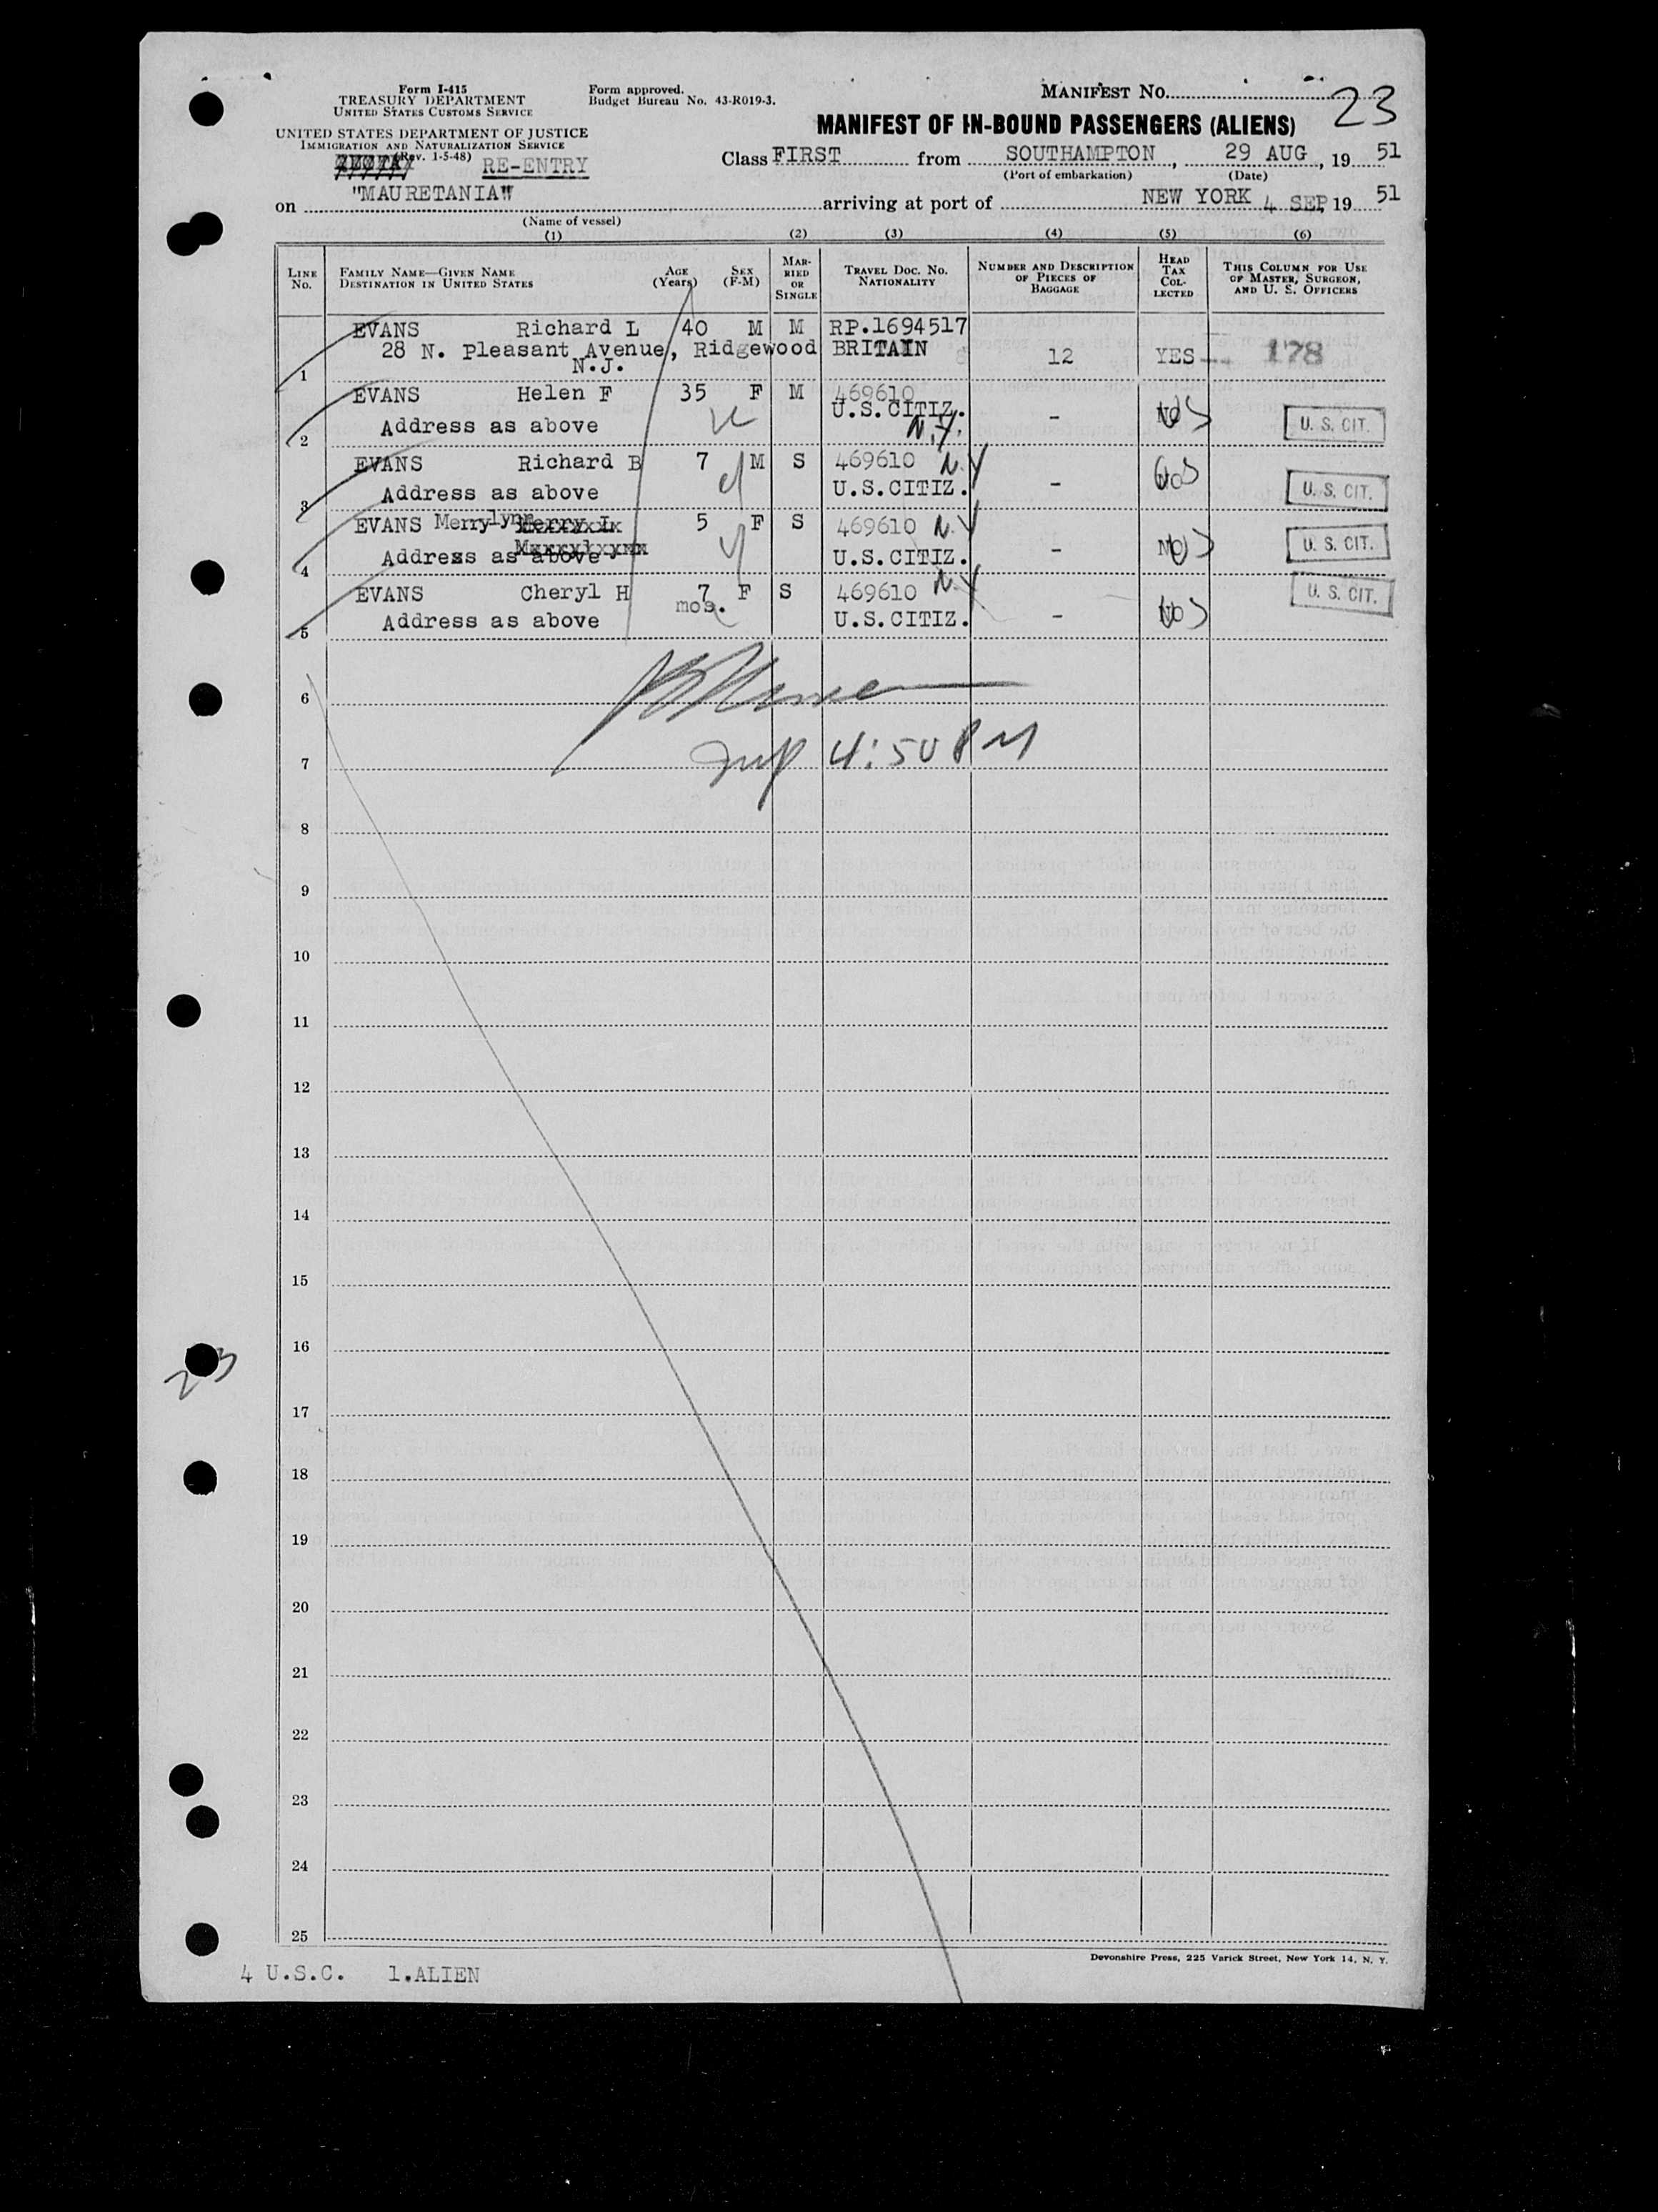 Form I-415
TREASURY DEPARTMENT
UNITED STATES CUSTOMS SERVICE
UNITED STATES DEPARTMENT OF JUSTICE
IMMIGRATION AND NATURALIZATION SERVICE
(Rev. 1-5-48)
RE-ENTRY
Form approved.
Budget Bureau No. 43-R019-3.
MANIFEST NO. 23
MANIFEST OF IN-BOUND PASSENGERS (ALIENS)
Class FIRST from SOUTHAMPTON, 29 AUG, 19 51
(Port of embarkation) (Date)
on "MAURETANIA" arriving at port of NEW YORK 4 SEP 19 51
(Name of vessel)
(1) (2) (3) (4) (5) (6)
LINE NO. FAMILY NAME—GIVEN NAME DESTINATION IN UNITED STATES AGE (Years) SEX (F-M) MARRIED OR SINGLE TRAVEL DOC. NO. NATIONALITY NUMBER AND DESCRIPTION OF PIECES OF BAGGAGE HEAD TAX COLLECTED THIS COLUMN FOR USE OF MASTER, SURGEON, AND U. S. OFFICERS
EVANS Richard L 40 M M RP.1694517
28 N. Pleasant Avenue, Ridgewood BRITAIN 12 YES 178
1 N.J.
EVANS Helen F 35 F M 469610
U.S.CITIZ. - NO U. S. CIT.
2 Address as above N.Y.
EVANS Richard B 7 M S 469610 N.Y
3 Address as above U.S.CITIZ. - NO U. S. CIT.
EVANS Merrylynn 5 F S 469610 N.Y
4 Address as above U.S.CITIZ. - NO U. S. CIT.
EVANS Cheryl H 7 mos. F S 469610 N.Y
5 Address as above U.S.CITIZ. - NO U. S. CIT.
6
7 4:50 PM
8
9
10
11
12
13
14
15
16
23
17
18
19
20
21
22
23
24
25
Devonshire Press, 225 Varick Street, New York 14, N. Y.
4 U.S.C. 1.ALIEN